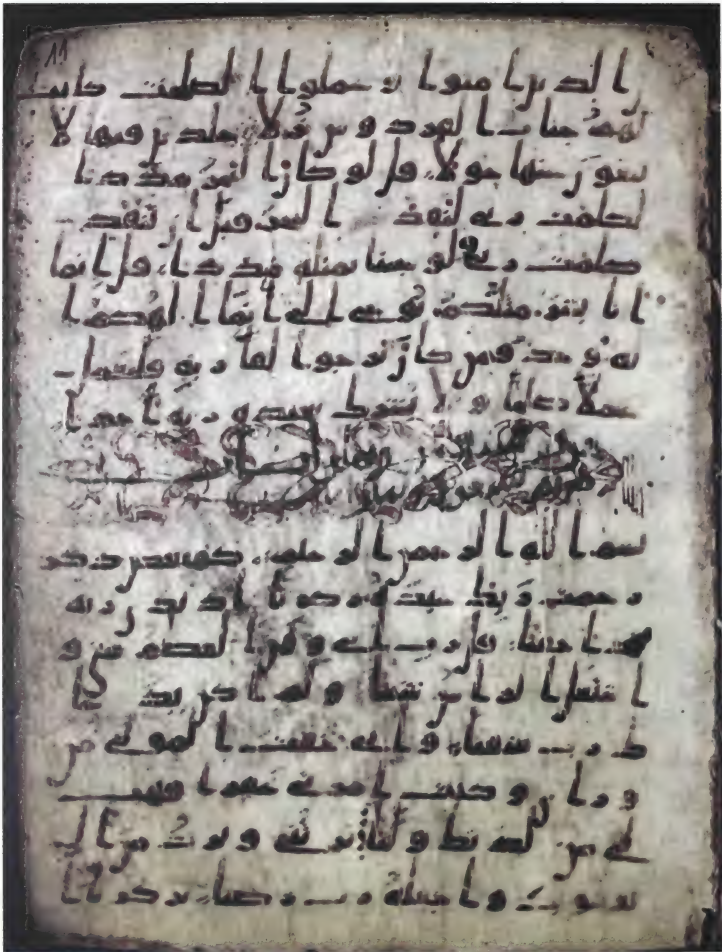 الذين امنوا و عملوا الصلحت كانت
لهم جنات الفردوس نزلا خلدين فيها لا
يبغون عنها حولا قل لو كان البحر مددا
لكلمت ربي لنفد البحر قبل ان تنفد
كلمت ربي و لو جينا بمثله مددا قل انما
انا بشر مثلكم يوحى الي انما الهكم ا
له وحد فمن كان يرجوا لقا ربه فليعمل
عملا صلحا و لا يشرك بعبدة ربه احدا
بسم الله الرحمن الرحيم كهيعص ذكر
رحمت ربك عبده زكريا اذ نادى ربه
ندا خفيا قال رب اني وهن العظم مني و
اشتعل الراس شيبا و لم اكن بدعا
ك رب شقيا و اني خفت المولي من
وراي و كانت امراتي عقرا فهب
لي من لدنك وليا يرثني و يرث من ال
يعقوب و اجعله رب رضيا يزكريا ا